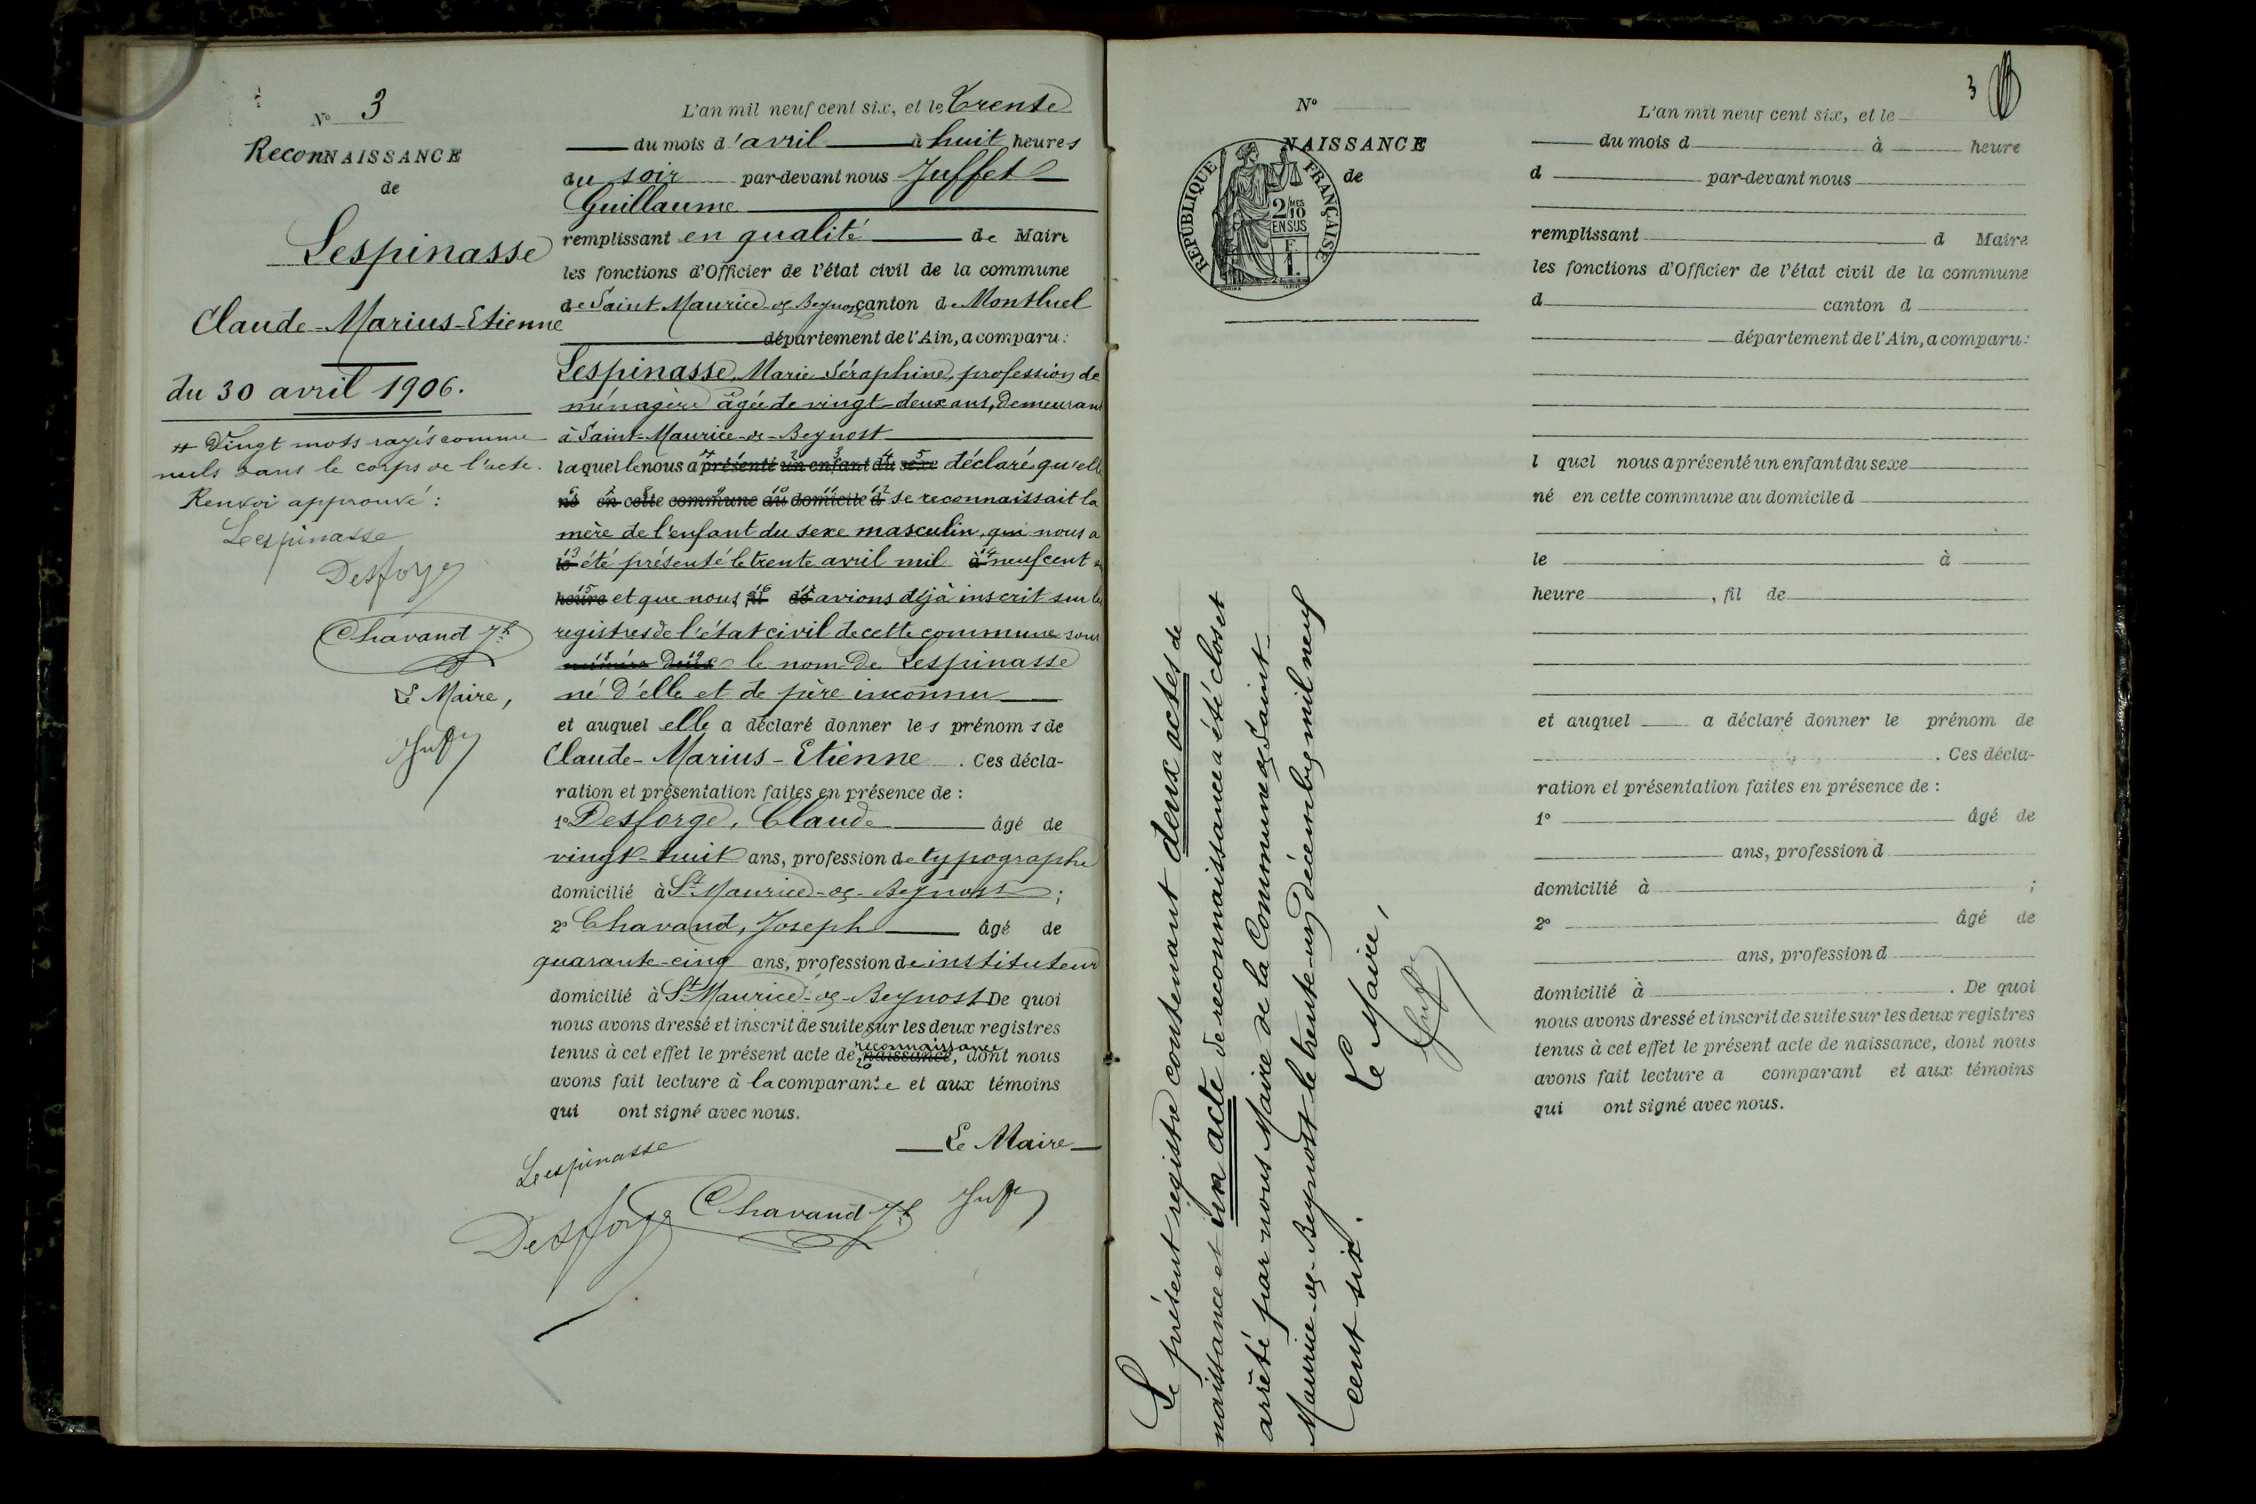 N° 3
ReconNAISSANCE
de
Lespinasse
Claude-Marius-Etienne
du 30 avril 1906.
+ Vingt mots rayés comme
nuls dans le corps de l'acte.
Renvoi approuvé :
Lespinasse
Desforge
Chavand Jh
Le Maire,
Juffet
L'an mil neuf cent six, et le trente
du mois d'avril à huit heures
du soir par-devant nous Juffet
Guillaume
remplissant en qualité de Maire
les fonctions d'Officier de l'état civil de la commune
de Saint Maurice-de-Beynost canton de Montluel
département de l'Ain, a comparu :
Lespinasse, Marie Séraphine, profession de
ménagère âgée de vingt-deux ans, demeurant
à Saint-Maurice-de-Beynost
laquelle nous a présenté un enfant du sexe déclaré qu'elle
né en cette commune au domicile d se reconnaissait la
mère de l'enfant du sexe masculin, qui nous a
le été présenté le trente avril mil à neuf cent six
heure et que nous fil de avions déjà inscrit sur les
registres de l'état civil de cette commune sous
numéro deux le nom de Lespinasse
né d'elle et de père inconnu
et auquel elle a déclaré donner les prénoms de
Claude-Marius-Etienne . Ces décla-
ration et présentation faites en présence de :
1° Desforge, Claude âgé de
vingt-huit ans, profession de typographe
domicilié à St Maurice-de-Beynost ;
2° Chavand, Joseph âgé de
quarante-cinq ans, profession de instituteur
domicilié à St Maurice-de-Beynost De quoi
nous avons dressé et inscrit de suite sur les deux registres
reconnaissance
tenus à cet effet le présent acte de naissance, dont nous
avons fait lecture à la comparante et aux témoins
qui ont signé avec nous.
Le Maire
Lespinasse
Desforge Chavand Jh Juffet
3
N°
NAISSANCE
de
RÉPUBLIQUE FRANÇAISE
2/10 MES
EN SUS
F
1.
Le présent registre contenant deux actes de
naissance et un acte de reconnaissance a été clos et
arrêté par nous Maire de la Commune de Saint-
Maurice-de-Beynost le trente-un décembre mil neuf
cent six.
Le Maire,
Juffet
L'an mil neuf cent six, et le
du mois d à heure
d par-devant nous
remplissant d Maire
les fonctions d'Officier de l'état civil de la commune
d canton d
département de l'Ain, a comparu :
l quel nous a présenté un enfant du sexe
né en cette commune au domicile d
le à
heure , fil de
et auquel a déclaré donner le prénom de
. Ces décla-
ration et présentation faites en présence de :
1° âgé de
ans, profession d
domicilié à ;
2° âgé de
ans, profession d
domicilié à . De quoi
nous avons dressé et inscrit de suite sur les deux registres
tenus à cet effet le présent acte de naissance, dont nous
avons fait lecture a comparant et aux témoins
qui ont signé avec nous.